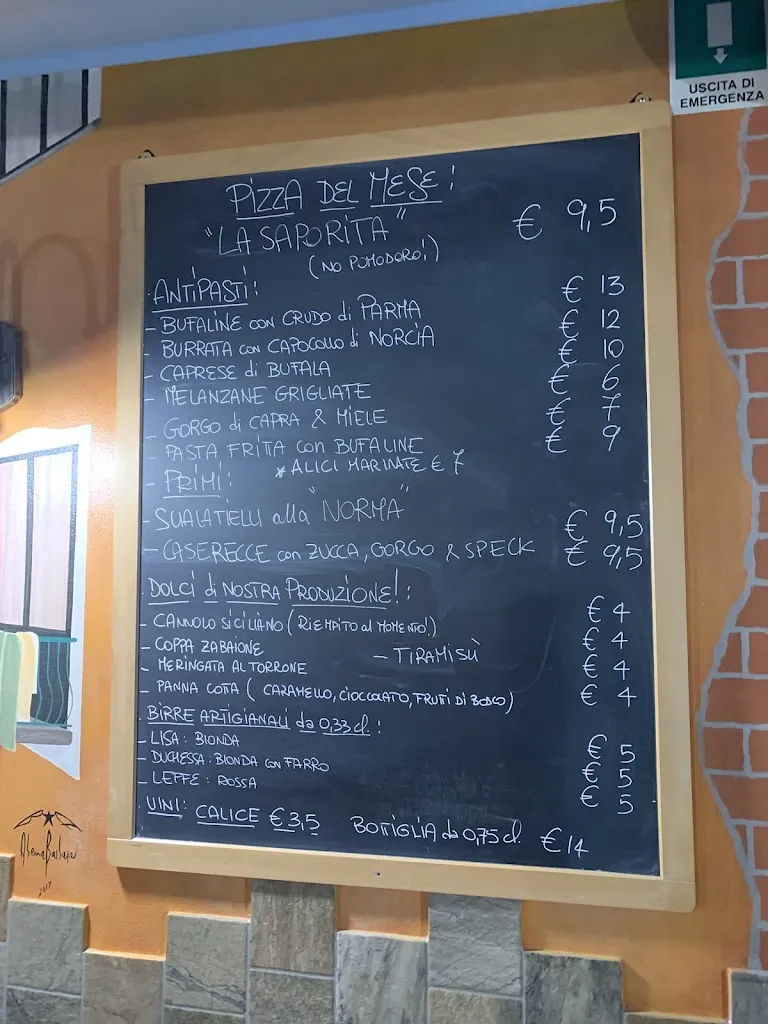 USCITA DI
EMERGENZA
PIZZA DEL MESE!
"LA SAPORITA" € 9,5
(NO POMODORO!)
ANTIPASTI:
- BUFALINE con CRUDO di PARMA € 13
- BURRATA con CAPOCOLLO di NORCIA € 12
- CAPRESE di BUFALA € 10
- MELANZANE GRIGLIATE € 6
- GORGO di CAPRA & MIELE € 7
- PASTA FRITTA con BUFALINE € 9
* ALICI MARINATE € 7
- PRIMI:
- SUALATIELLI alla "NORMA" € 9,5
- CASERECCE con ZUCCA, GORGO & SPECK € 9,5
DOLCI di NOSTRA PRODUZIONE!:
- CANNOLO SICILIANO (RIEMPITO al MOMENTO!) € 4
- COPPA ZABAIONE - TIRAMISÙ € 4
- MERINGATA AL TORRONE € 4
- PANNA COTTA ( CARAMELLO, CIOCCOLATO, FRUTTI DI BOSCO) € 4
BIRRE ARTIGIANALI da 0,33 cl.:
- LISA: BIONDA € 5
- DUCHESSA: BIONDA con FARRO € 5
- LEFFE: ROSSA € 5
VINI: CALICE € 3,5 BOTTIGLIA da 0,75 cl. € 14